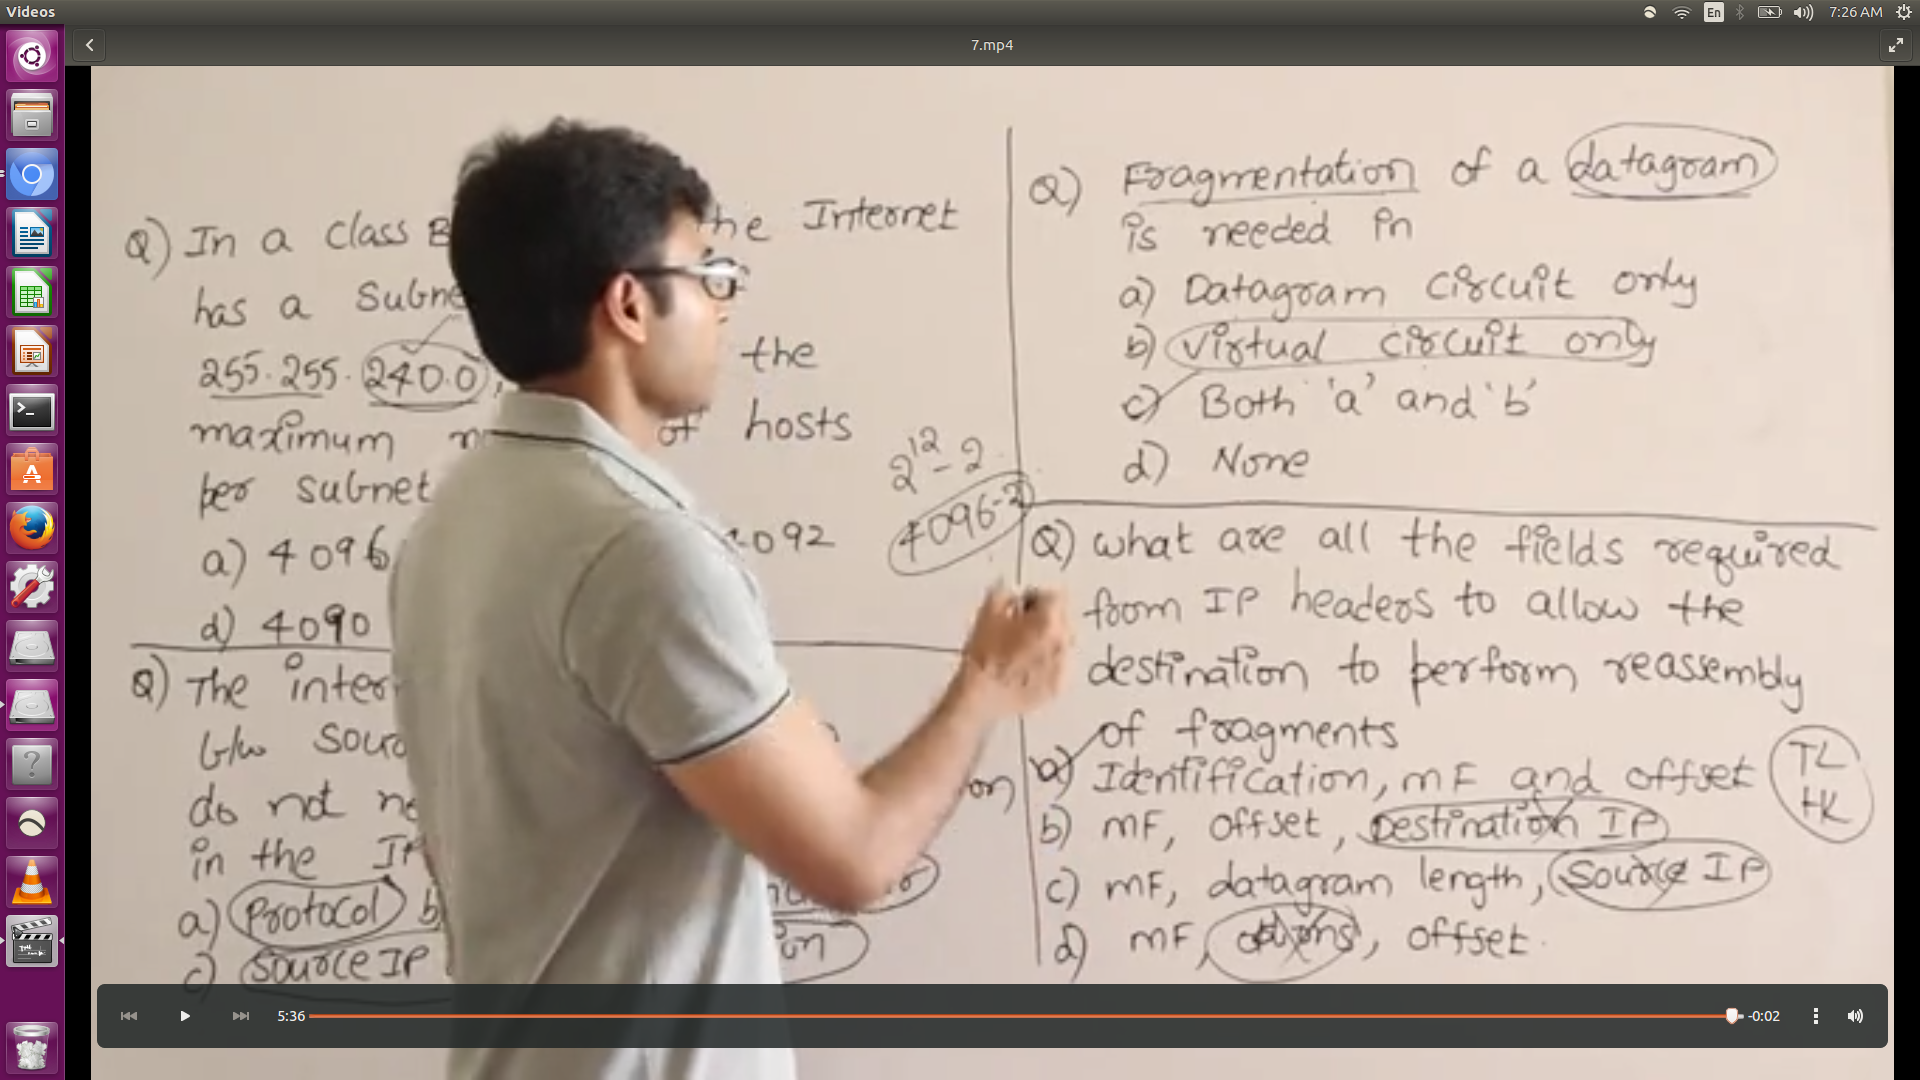 Videos
En
7:26 AM
7.mp4
Q) In a class B the Internet
has a Subne
255.255.240.0, the
maximum of hosts
per subnet
2^12 - 2
4096-2
a) 4096 4092
d) 4090
Q) The inter
b/w Sour
do not on)
in the IP
a) Protocol b
c) Source IP
Q) Fragmentation of a datagram
is needed in
a) Datagram circuit only
b) virtual circuit only
c) Both 'a' and 'b'
d) None
Q) what are all the fields required
from IP headers to allow the
destination to perform reassembly
of fragments
a) Identification, MF and offset
TL
HK
b) MF, offset, Destination IP
c) MF, datagram length, Source IP
d) MF, options, offset.
5:36
-0:02